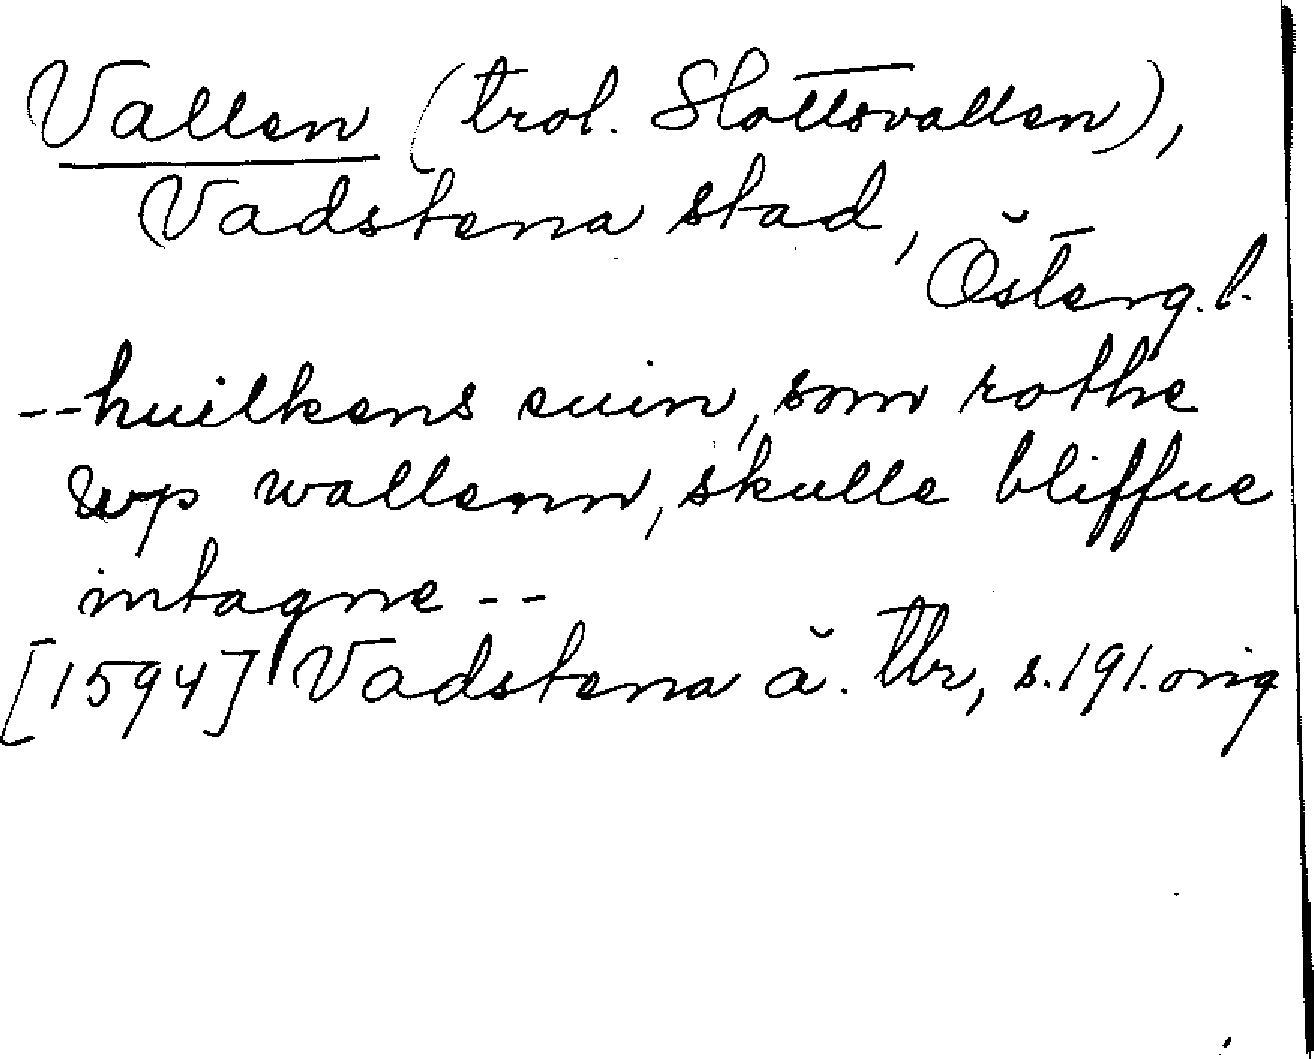 Vallen (trol. Slottsvallen),
Vadstena stad,
Österg. l.
--huilkens suin, som rothe
wp wallenn, skulle bliffue
intagne --
[1594] Vadstena ä. tbr, s. 191. orig